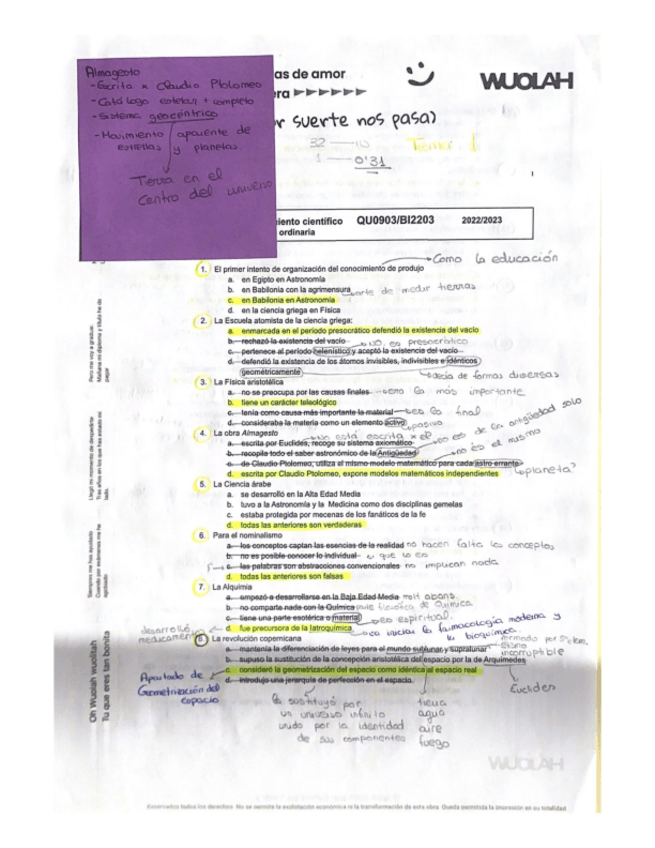 Almagesto
- Escrita x Claudio Ptolomeo
- Catálogo estelar + completo
- Sistema geocéntrico
- Movimiento aparente de
estrellas y planetas.
Tierra en el
centro del universo
as de amor
ra
WUOLAH
r suerte nos pasa)
32 — 10
1 — 0'31
Temer 1
iento científico QU0903/BI2203 2022/2023
ordinaria
1. El primer intento de organización del conocimiento de produjo
Como la educación
a. en Egipto en Astronomía
b. en Babilonia con la agrimensura
arte de medir tierras
c. en Babilonia en Astronomía
d. en la ciencia griega en Física
2. La Escuela atomista de la ciencia griega:
a. enmarcada en el período presocrático defendió la existencia del vacío
b. rechazó la existencia del vacío
NO, es presocrático
c. pertenece al período helenístico y aceptó la existencia del vacío
d. defendió la existencia de los átomos invisibles, indivisibles e idénticos
geométricamente
decía de formas diversas
3. La Física aristotélica
a. no se preocupa por las causas finales
era la más importante
b. tiene un carácter teleológico
c. tenía como causa más importante la material
es la final
d. consideraba la materia como un elemento activo
pasivo
4. La obra Almagesto
No está escrita x el
no es de la antigüedad solo
a. escrita por Euclides, recoge su sistema axiomático
b. recopila todo el saber astronómico de la Antigüedad
no es el mismo
c. de Claudio Ptolomeo, utiliza el mismo modelo matemático para cada astro errante
planeta?
d. escrita por Claudio Ptolomeo, expone modelos matemáticos independientes
5. La Ciencia árabe
a. se desarrolló en la Alta Edad Media
b. tuvo a la Astronomía y la Medicina como dos disciplinas gemelas
c. estaba protegida por mecenas de los fanáticos de la fe
d. todas las anteriores son verdaderas
6. Para el nominalismo
a. los conceptos captan las esencias de la realidad
no hacen falta los conceptos
b. no es posible conocer lo individual
si que lo es
c. las palabras son abstracciones convencionales
no implican nada
d. todas las anteriores son falsas
7. La Alquimia
a. empezó a desarrollarse en la Baja Edad Media
b. no comparte nada con la Química
parte filosófica de Química
c. tiene una parte esotérica o material
es espiritual
d. fue precursora de la Iatroquímica
desarrolló
medicamentos
se inicia la farmacología moderna y
la bioquímica
8. La revolución copernicana
a. mantenía la diferenciación de leyes para el mundo sublunar y supralunar
formado por
incorruptible
b. supuso la sustitución de la concepción aristotélica del espacio por la de Arquímedes
Euclides
c. consideró la geometrización del espacio como idéntica al espacio real
Apartado de
Geometrización del
espacio
d. introdujo una jerarquía de perfección en el espacio.
la sustituyó por
un universo infinito
unido por la identidad
de sus componentes
tierra
agua
aire
fuego
Oh Wuolah wuolitah
Tu que eres tan bonita
WUOLAH
Reservados todos los derechos. No se permite la explotación económica ni la transformación de esta obra. Queda permitida la impresión en su totalidad.